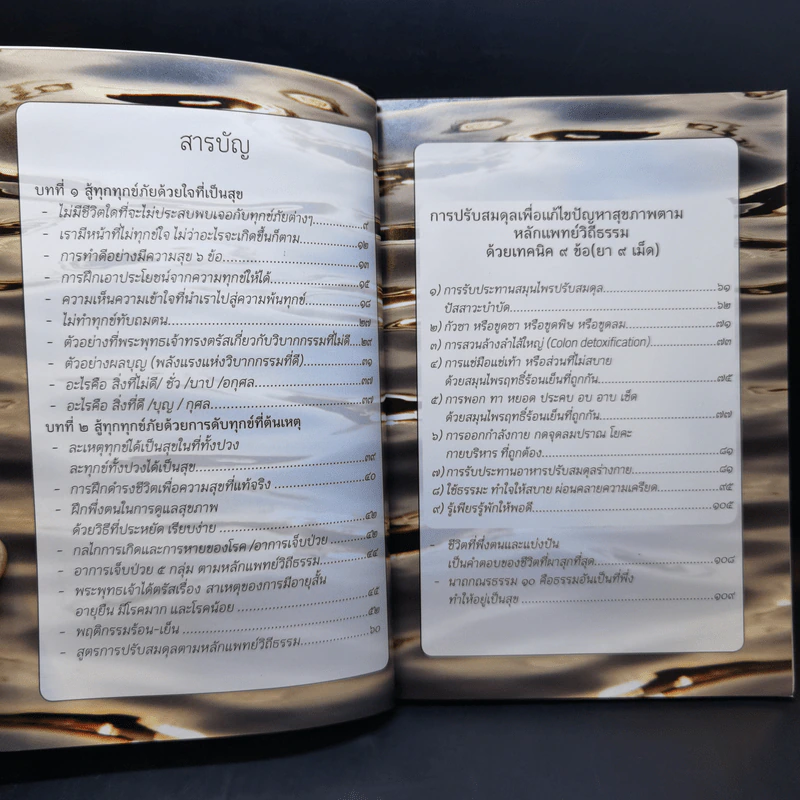 สารบัญ
บทที่ ๑ สู้ทุกทุกข์ภัยด้วยใจที่เป็นสุข
- ไม่มีชีวิตใดที่จะไม่ประสบพบเจอกับทุกข์ภัยต่างๆ...............๙
- เรามีหน้าที่ไม่ทุกข์ใจ ไม่ว่าอะไรจะเกิดขึ้นก็ตาม...............๑๒
- การทำดีอย่างมีความสุข ๖ ข้อ...............๑๓
- การฝึกเอาประโยชน์จากความทุกข์ให้ได้...............๑๕
- ความเห็นความเข้าใจที่นำเราไปสู่ความพ้นทุกข์...............๑๘
- ไม่ทำทุกข์ทับถมตน...............๒๗
- ตัวอย่างที่พระพุทธเจ้าทรงตรัสเกี่ยวกับวิบากกรรมที่ไม่ดี...๒๙
- ตัวอย่างผลบุญ (พลังแรงแห่งวิบากกรรมที่ดี)...............๓๑
- อะไรคือ สิ่งที่ไม่ดี/ ชั่ว /บาป /อกุศล...............๓๗
- อะไรคือ สิ่งที่ดี /บุญ / กุศล...............๓๘
บทที่ ๒ สู้ทุกทุกข์ภัยด้วยการดับทุกข์ที่ต้นเหตุ
- ละเหตุทุกข์ได้เป็นสุขในที่ทั้งปวง
ละทุกข์ทั้งปวงได้เป็นสุข...............๓๙
- การฝึกดำรงชีวิตเพื่อความสุขที่แท้จริง ...............๔๐
- ฝึกพึ่งตนในการดูแลสุขภาพ
ด้วยวิธีที่ประหยัด เรียบง่าย ...............๔๒
- กลไกการเกิดและการหายของโรค /อาการเจ็บป่วย ...............๔๒
- อาการเจ็บป่วย ๕ กลุ่ม ตามหลักแพทย์วิถีธรรม...............๔๔
- พระพุทธเจ้าได้ตรัสเรื่อง สาเหตุของการมีอายุสั้น
อายุยืน มีโรคมาก และโรคน้อย ...............๔๕
- พฤติกรรมร้อน-เย็น ...............๕๒
- สูตรการปรับสมดุลตามหลักแพทย์วิถีธรรม...............๖๐
การปรับสมดุลเพื่อแก้ไขปัญหาสุขภาพตาม
หลักแพทย์วิถีธรรม
ด้วยเทคนิค ๙ ข้อ(ยา ๙ เม็ด)
๑) การรับประทานสมุนไพรปรับสมดุล...............๖๑
ปัสสาวะบำบัด...............๖๒
๒) กัวซา หรือขูดซา หรือขูดพิษ หรือขูดลม...............๗๑
๓) การสวนล้างลำไส้ใหญ่ (Colon detoxification)...............๗๓
๔) การแช่มือแช่เท้า หรือส่วนที่ไม่สบาย
ด้วยสมุนไพรฤทธิ์ร้อนเย็นที่ถูกกัน...............๗๕
๕) การพอก ทา หยอด ประคบ อบ อาบ เช็ด
ด้วยสมุนไพรฤทธิ์ร้อนเย็นที่ถูกกัน...............๗๗
๖) การออกกำลังกาย กดจุดลมปราณ โยคะ
กายบริหาร ที่ถูกต้อง...............๘๑
๗) การรับประทานอาหารปรับสมดุลร่างกาย...............๘๑
๘) ใช้ธรรมะ ทำใจให้สบาย ผ่อนคลายความเครียด...............๙๕
๙) รู้เพียรรู้พักให้พอดี...............๑๐๕
- ชีวิตที่พึ่งตนและแบ่งปัน
เป็นคำตอบของชีวิตที่ผาสุกที่สุด...............๑๐๘
- นาถกณธรรม ๑๐ คือธรรมอันเป็นที่พึ่ง
ทำให้อยู่เป็นสุข ...............๑๐๙